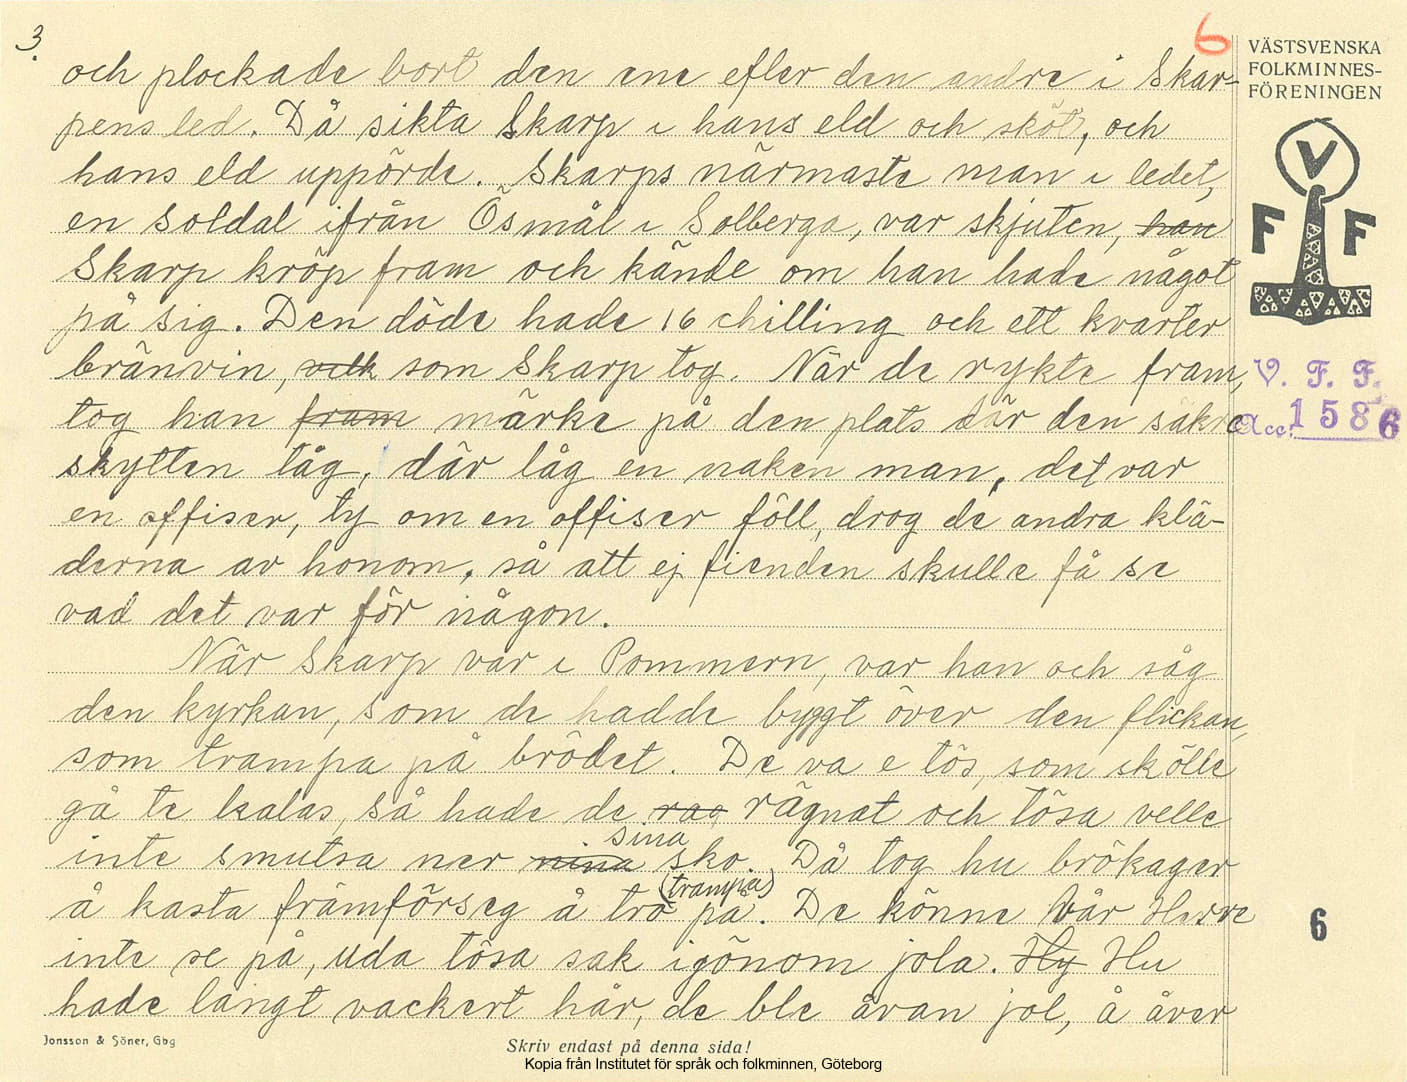 3.
6
VÄSTSVENSKA
FOLKMINNES-
FÖRENINGEN
och plockade bort den ene efter den andre i Skar-
pens led. Då sikta Skarp i hans eld och sköt, och
hans eld uppörde. Skarps närmaste man i ledet,
en soldat ifrån Ösmål i Solberga, var skjuten, han
Skarp kröp fram och kände om han hade något
på sig. Den döde hade 16 chilling och ett kvarter
bränvin, vilk som Skarp tog. När de rykte fram,
tog han fram märke på den plats där den säkre
skytten låg, där låg en naken man, det var
en offiser, ty om en offiser föll, drog de andra klä-
derna av honom, så att ej fienden skulle få se
vad det var för någon.
När Skarp var i Pommern, var han och såg
den kyrkan, som de hadde byggt över den flickan,
som trampa på brödet. De va e tös, som skölle
gå te kalas, så hade de rag rägnat och tösa velle
inte smutsa ner nina sina sko. Då tog hu brökager
å kasta främförseg å tro (trampa) på. De könne Vår Herre
inte se på, uda tösa sak igönom jola. Hy Hu
hade långt vackert hår, de ble åvan jol, å åver
V
F F
V. F. F.
Acc. 1586
6
Jonsson & Söner, Gbg
Skriv endast på denna sida!
Kopia från Institutet för språk och folkminnen, Göteborg